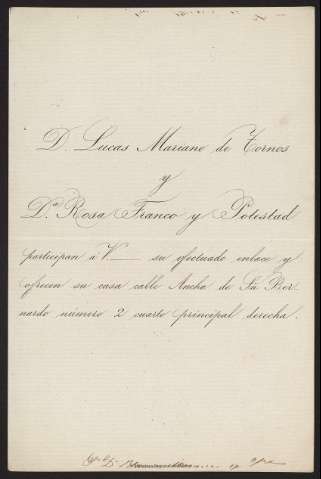 D. Lucas Mariano de Tornos
y
D.ª Rosa Franco y Potestad
participan á V___ su efectuado enlace y
ofrecen su casa calle Ancha de Sn Ber-
nardo número 2 cuarto principal derecha.